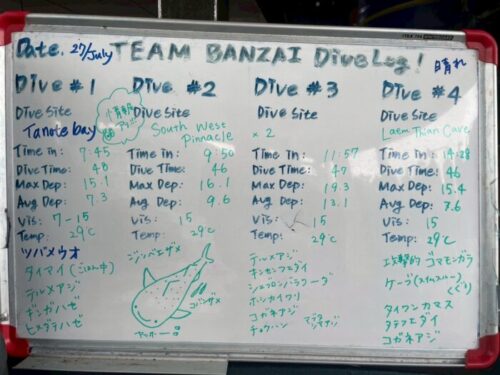 Date. 27/July TEAM BANZAI Dive Log! 晴れ
Dive #1
Dive Site
Tanote bay
Time in: 7:45
Dive Time: 48
Max Dep: 15.1
Avg Dep: 7.3
Vis: 7-15
Temp: 29℃
ツバメウオ
タイマイ
テルメアジ
ギンガハゼ
ヒメダテハゼ
Dive #2
Dive Site
South West
Pinnacle
Time in: 9:50
Dive Time: 46
Max Dep: 16.1
Avg Dep: 9.6
Vis: 15
Temp: 29℃
ジンベエザメ
コバンザメ
Dive #3
Dive Site
× 2
Time in: 11:57
Dive Time: 47
Max Dep: 19.3
Avg Dep: 13.1
Vis: 15
Temp: 29℃
テルメアジ
キンセンフエダイ
シェブロンバラクーダ
ホシカイワリ
コガネアジ
マブタシマアジ
Dive #4
Dive Site
Laem Thian Cave
Time in: 14:28
Dive Time: 46
Max Dep: 15.4
Avg Dep: 7.6
Vis: 15
Temp: 29℃
攻撃的 ゴマモンガラ
ケーブ(スイムスルー)
タイワンカマス
タテフエダイ
コガネアジ